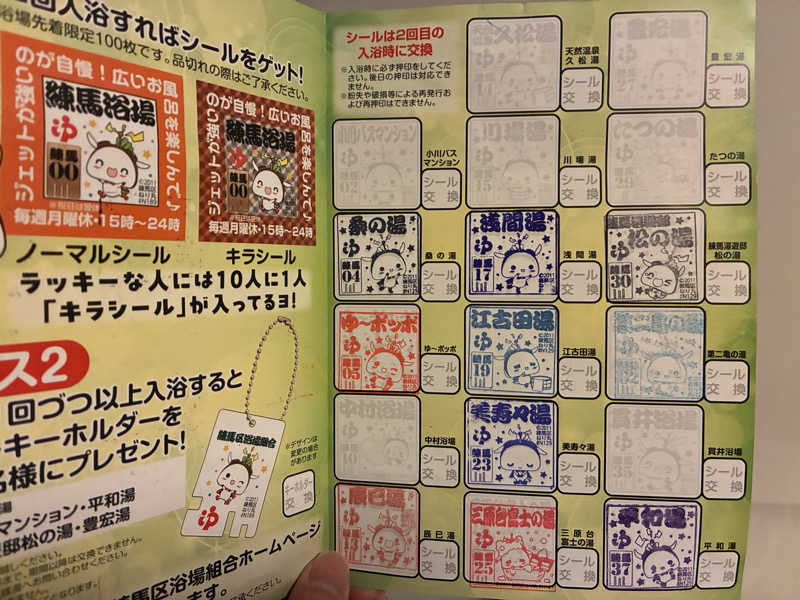 回入浴すればシールをゲット!
浴場先着限定100枚です。品切れの際はご了承ください。
のが自慢!広いお風呂を楽しんで♪
ジェットが強い
練馬浴場
ゆ
練馬
00
毎週月曜休・15時〜24時
のが自慢!広いお風呂を楽しんで♪
ジェットが強い
練馬浴場
ゆ
練馬
00
毎週月曜休・15時〜24時
ノーマルシール
キラシール
ラッキーな人には10人に1人
「キラシール」が入ってるヨ!
ス2
回づつ以上入浴すると
キーホルダーを
名様にプレゼント!
練馬区浴場組合
ゆ
※デザインは
変更の場合
があります
キーホルダー
交換
湯
マンション・平和湯
邸松の湯・豊宏湯
練馬区浴場組合ホームページ
ます。
シールは2回目の
入浴時に交換
※入浴時に必ず押印をしてく
ださい。後日の押印は対応でき
ません。
※紛失や破損等による再発行お
よび再押印はできません。
久松湯
天然温泉
久松湯
シール
交換
豊宏湯
豊宏湯
シール
交換
小川バスマンション
ゆ
練馬
02
小川バス
マンション
シール
交換
川場湯
ゆ
練馬
15
川場湯
シール
交換
たつの湯
ゆ
練馬
29
たつの湯
シール
交換
桑の湯
ゆ
練馬
04
桑の湯
シール
交換
浅間湯
ゆ
練馬
17
浅間湯
シール
交換
松の湯
ゆ
練馬
30
練馬湯遊邸
松の湯
シール
交換
ゆ〜ポッポ
ゆ
練馬
05
ゆ〜ポッポ
シール
交換
江古田湯
ゆ
練馬
19
江古田湯
シール
交換
第二亀の湯
第二亀の湯
シール
交換
中村浴場
中村浴場
シール
交換
美寿々湯
ゆ
練馬
23
美寿々湯
シール
交換
貫井浴場
貫井浴場
シール
交換
辰巳湯
ゆ
練馬
13
辰巳湯
シール
交換
三原台富士の湯
ゆ
練馬
25
三原台
富士の湯
シール
交換
平和湯
ゆ
練馬
37
平和湯
シール
交換